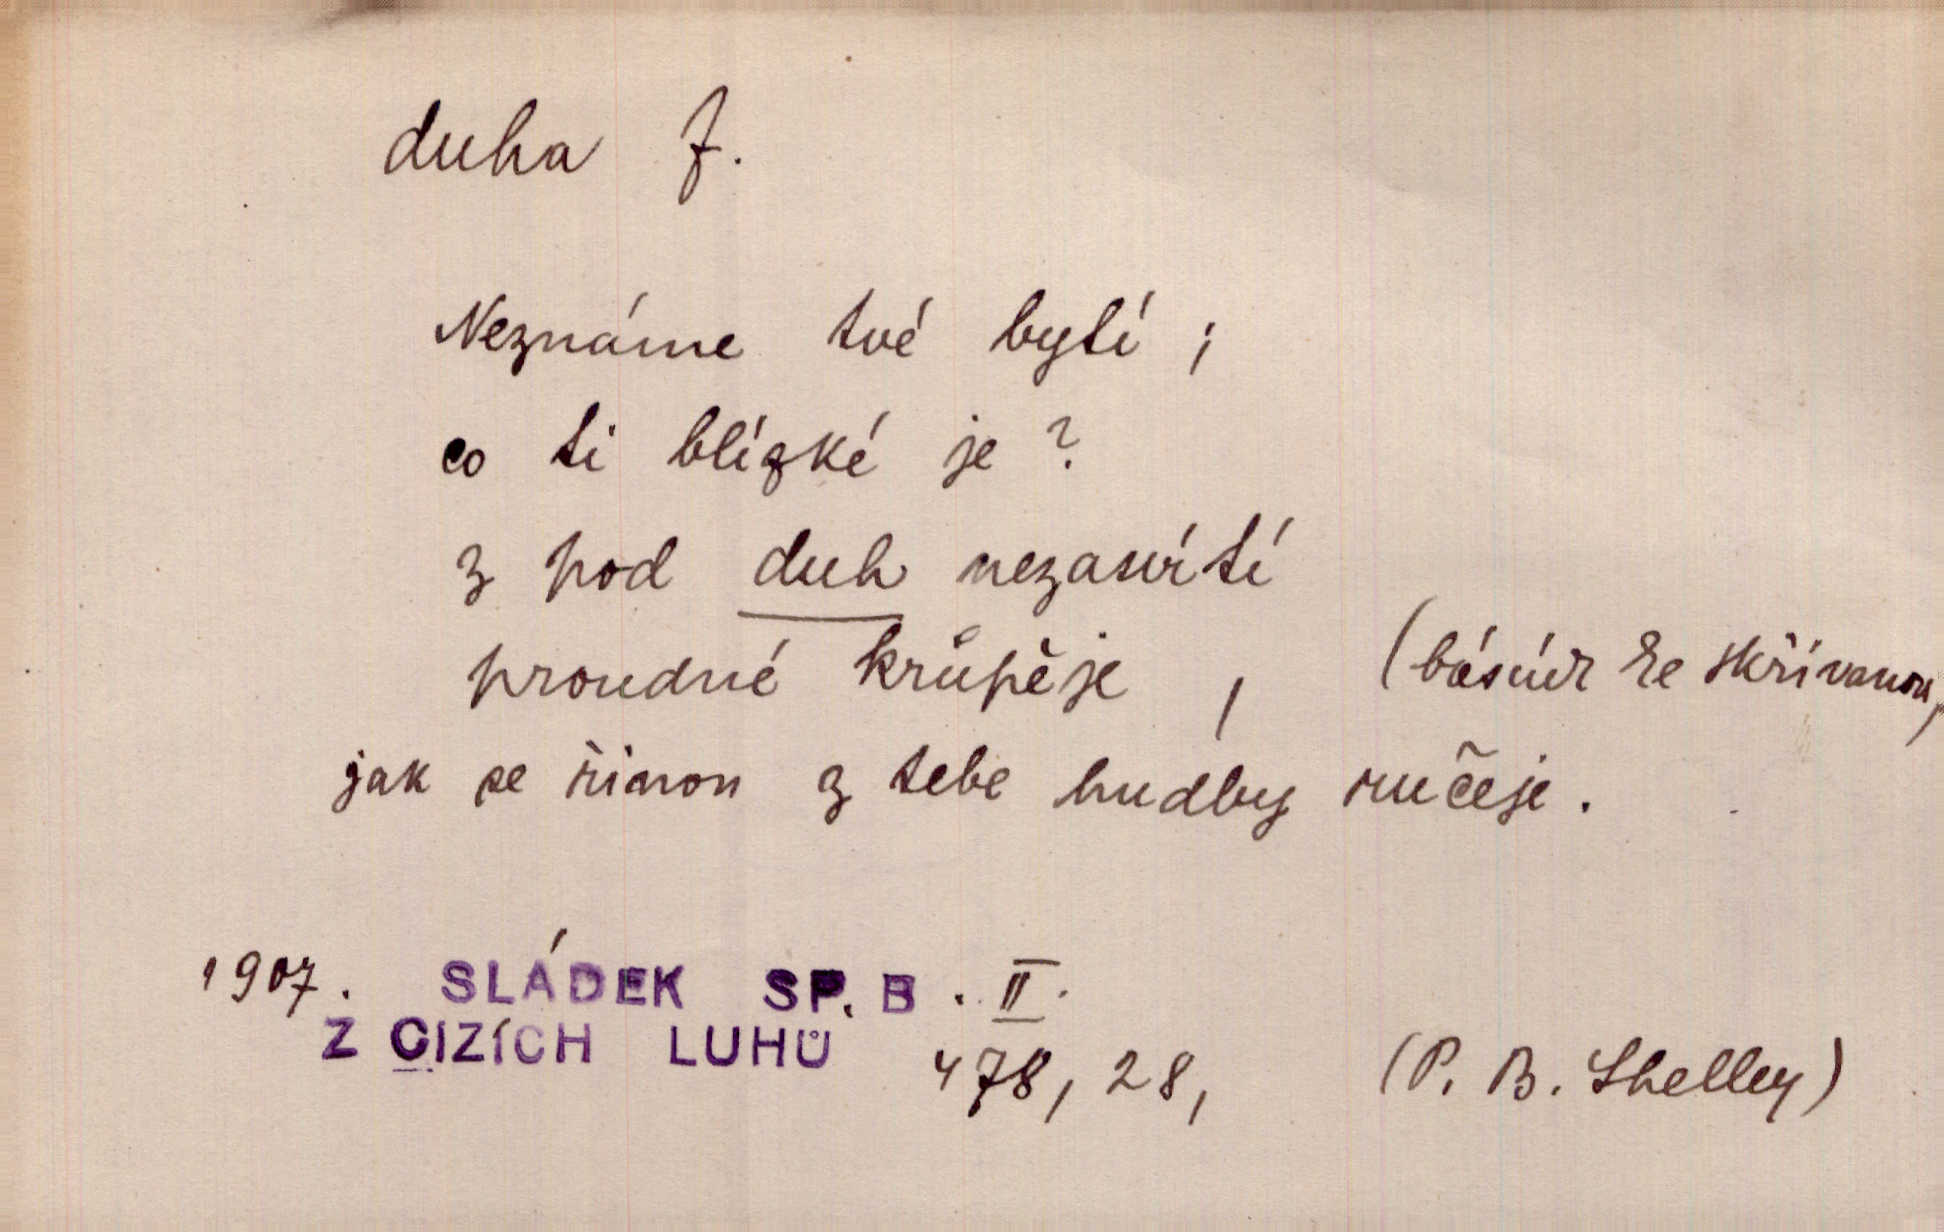 duha f.
Neznáme tvé bytí ;
co ti blízké je ?
z pod duh nezasvítí
proudné krůpěje ,
(básník ke skřivanu)
jak se řinou z tebe hudby ručeje .
1907. SLÁDEK SP. B. II.
Z CIZÍCH LUHŮ
478, 28,
(P. B. Shelley)